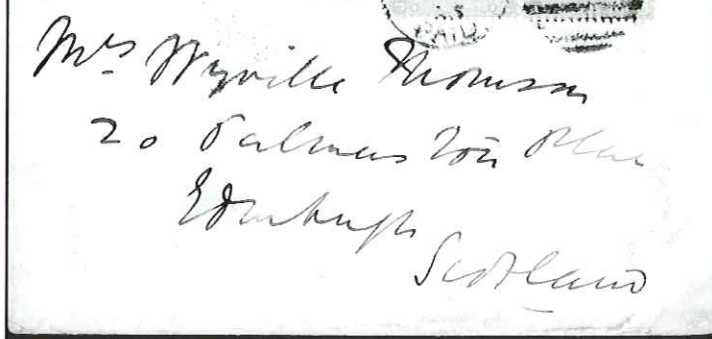 PAID
Mrs Wyville Thomson
20 Palmerston Place
Edinburgh
Scotland